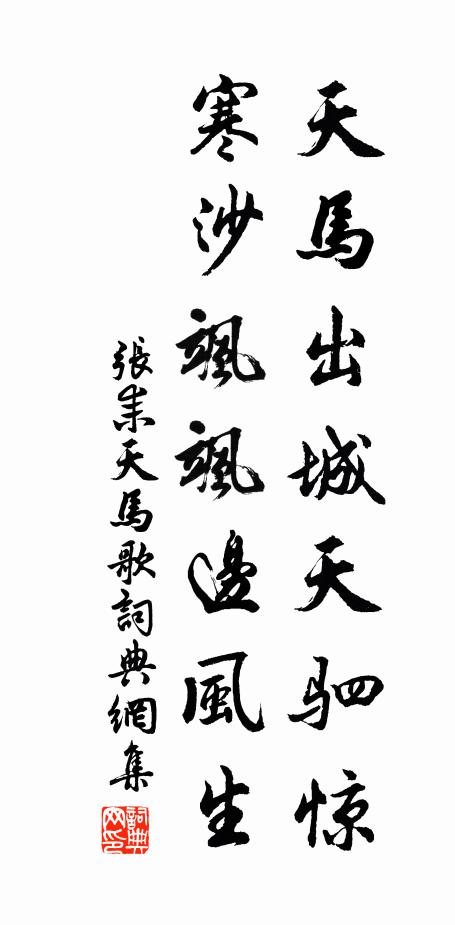 天馬出城天驷惊
寒沙颯颯邊風生
張耒天馬歌詞典網集
詞典網印